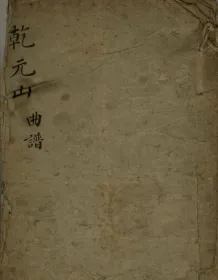 乾元山
曲譜